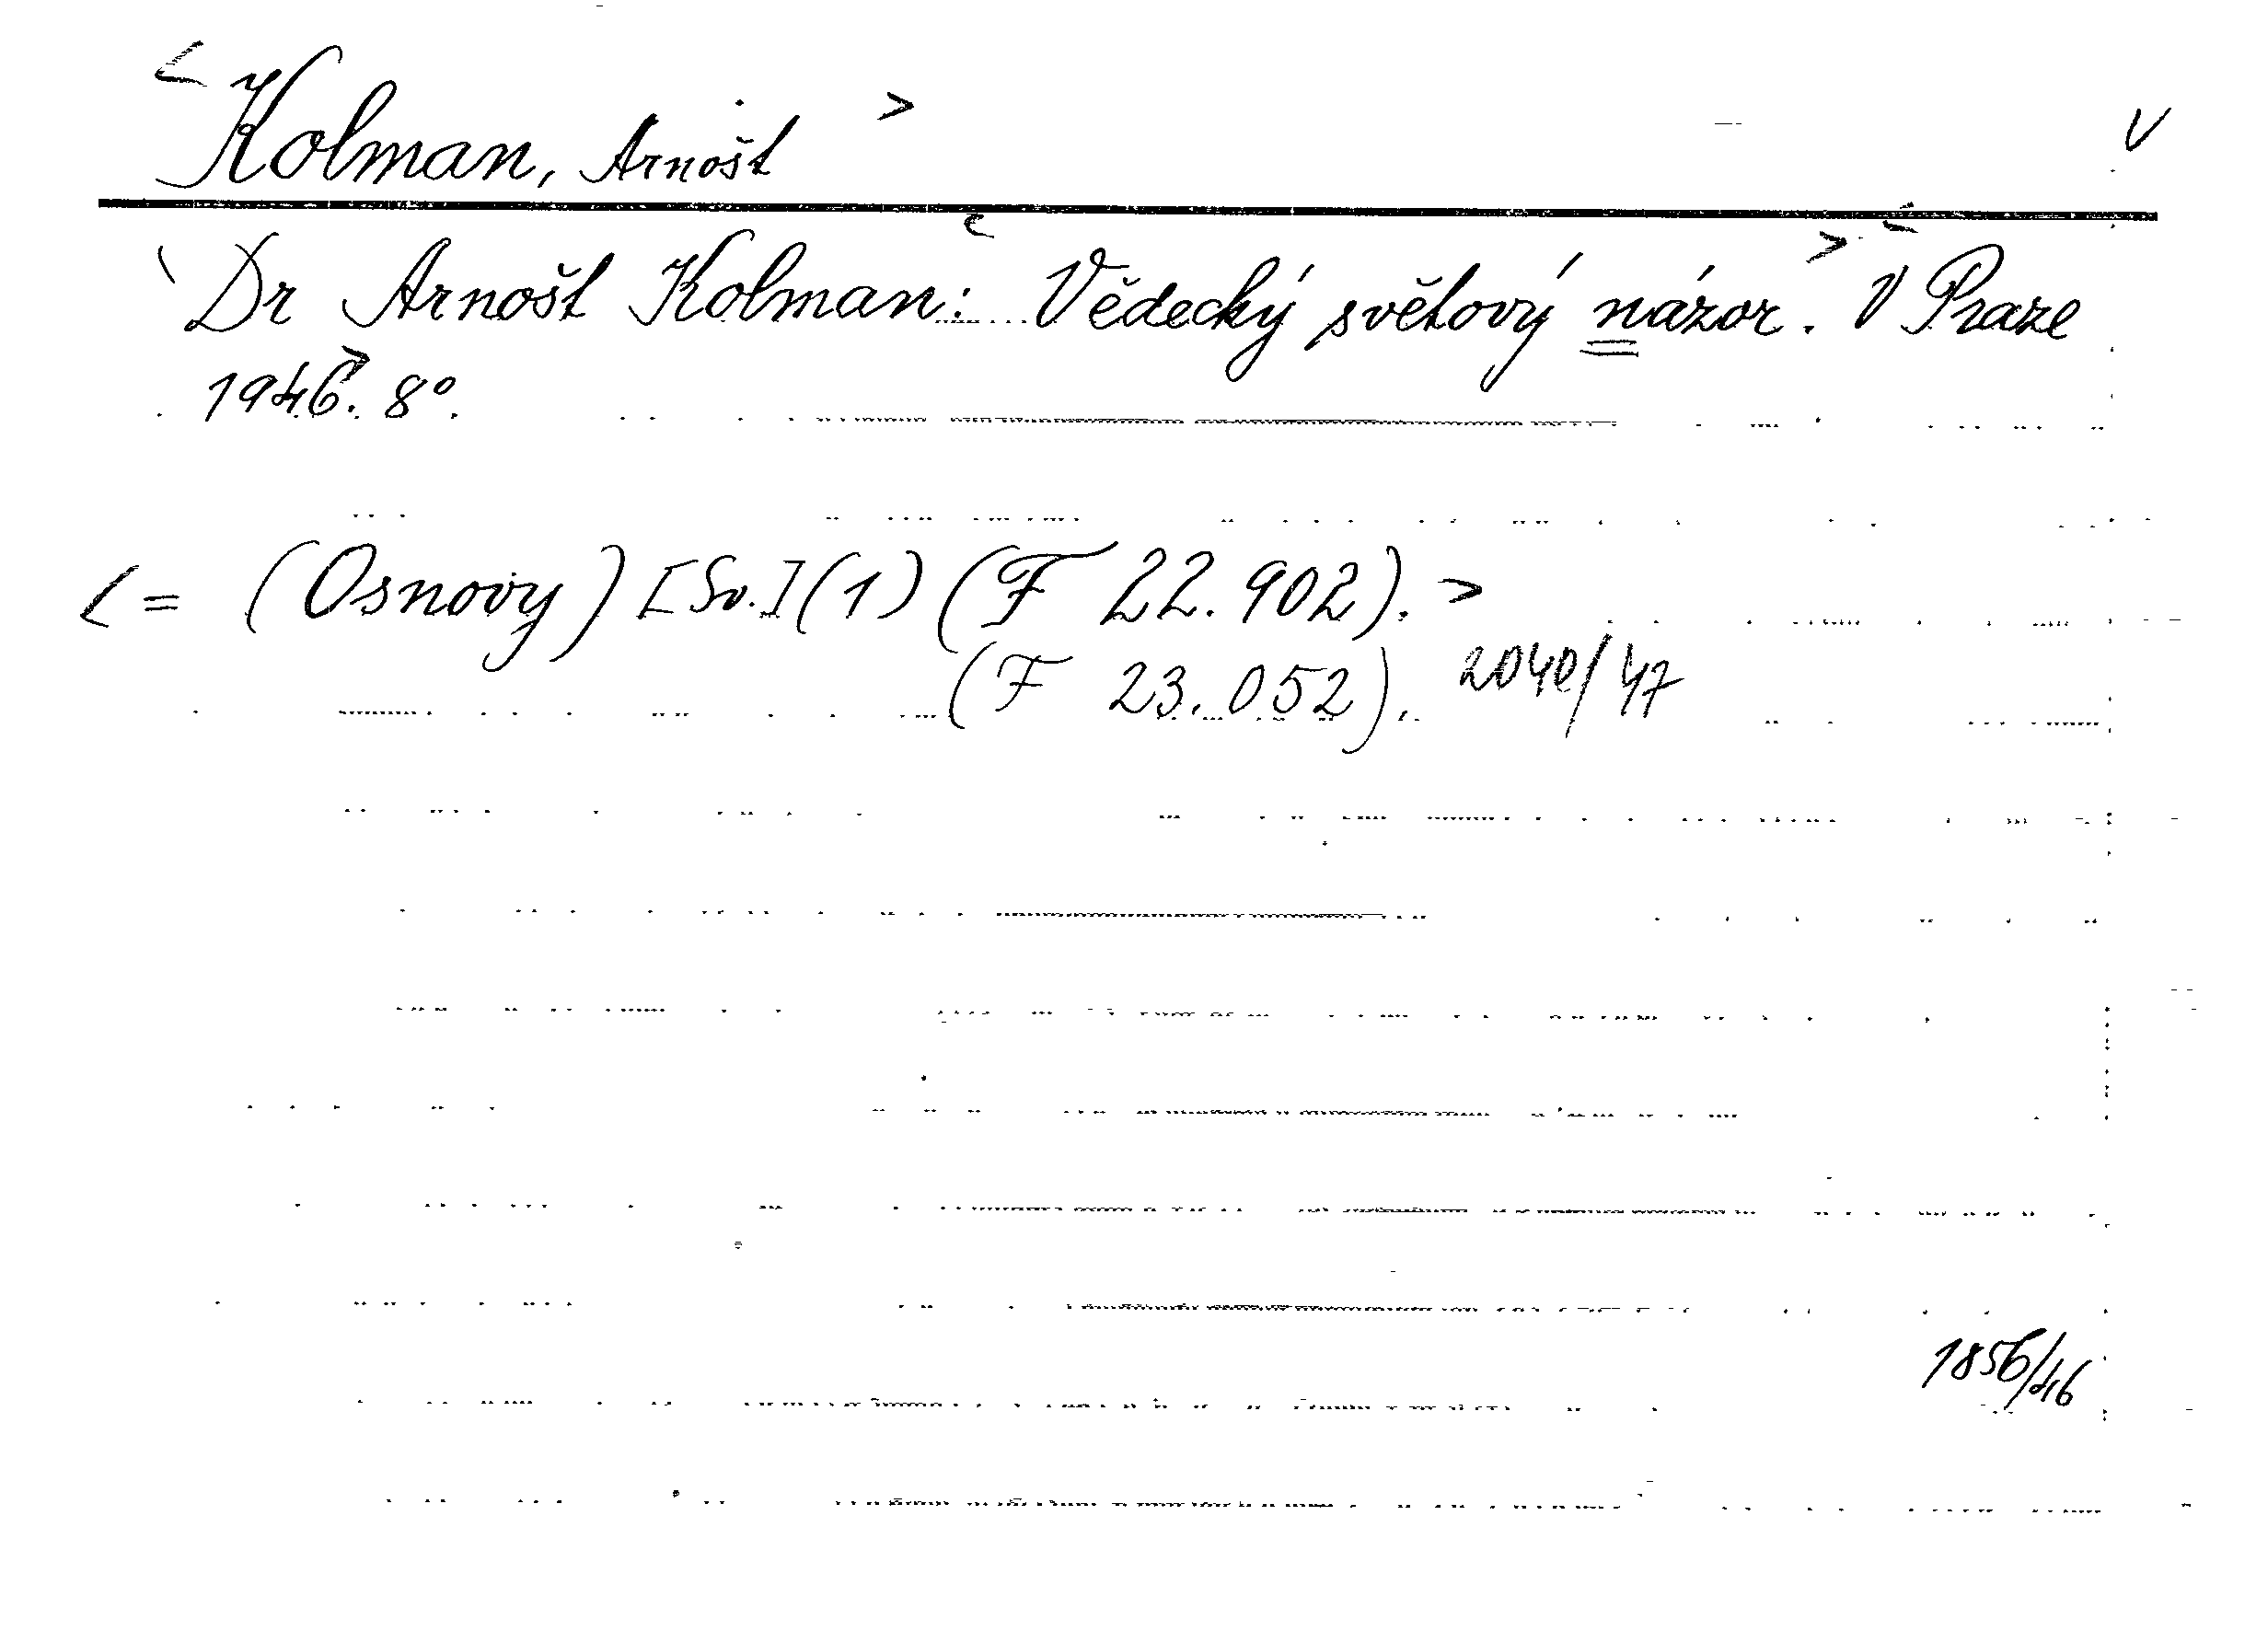 < Kolman, Arnošt > V
Dr Arnošt Kolman: < Vědecký světový názor. > < V Praze
1946. > 8°.
< = (Osnovy) [Sv.] (1) (F 22.902). >
(F 23.052). 2040/47
1856/46